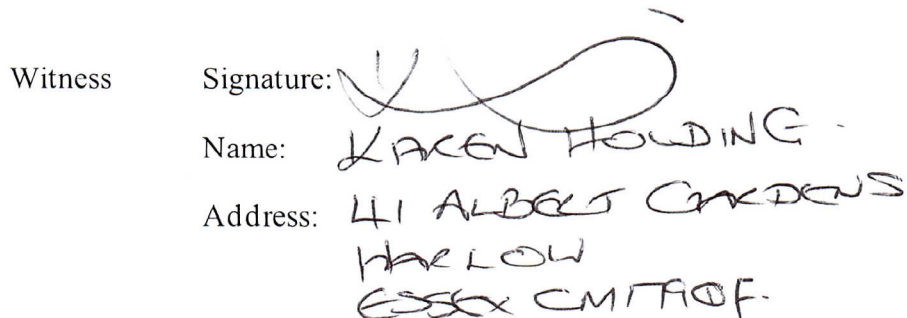 Witness Signature:
Name: KAREN HOLDING.
Address: 41 ALBERT GARDENS
HARLOW
ESSEX CM17 9QF.